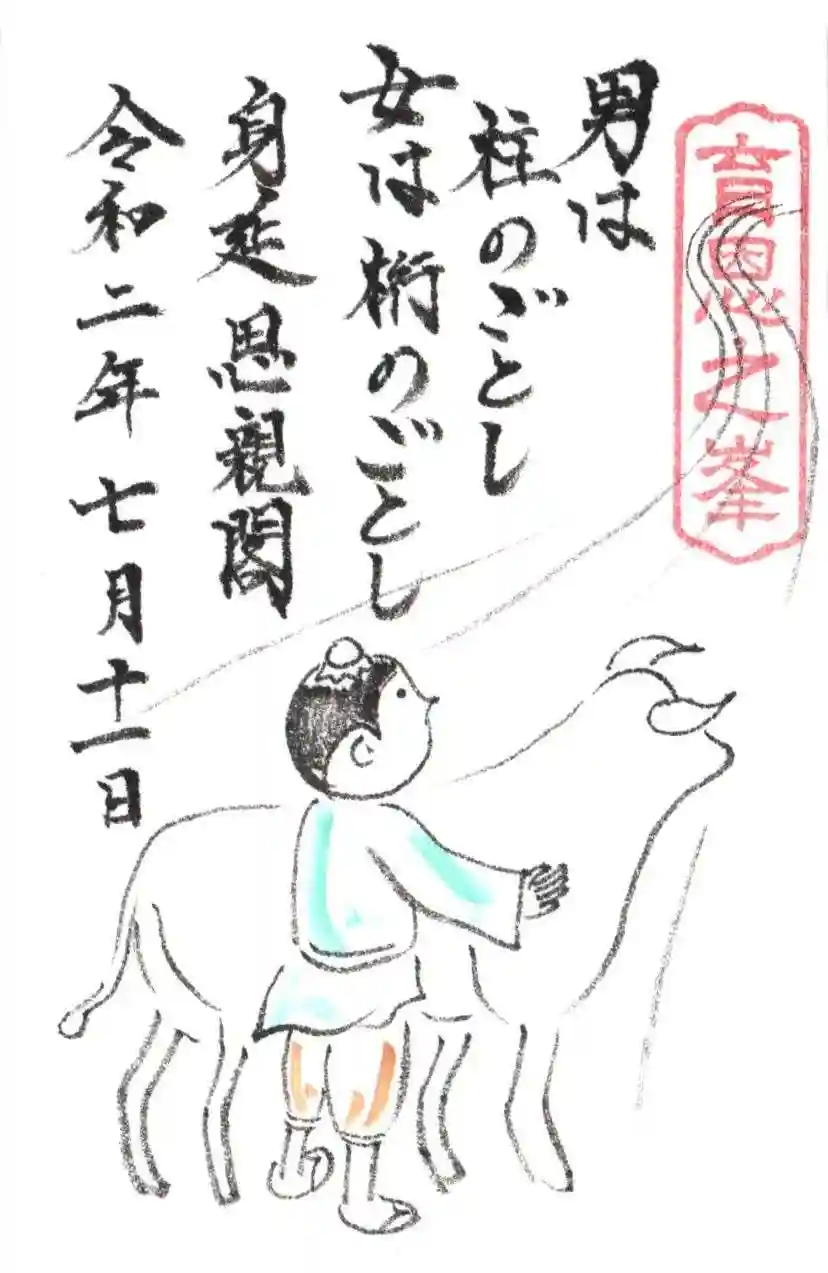 育恩之峯
男は
柱のごとし
女は桁のごとし
身延思親閣
令和二年七月十一日